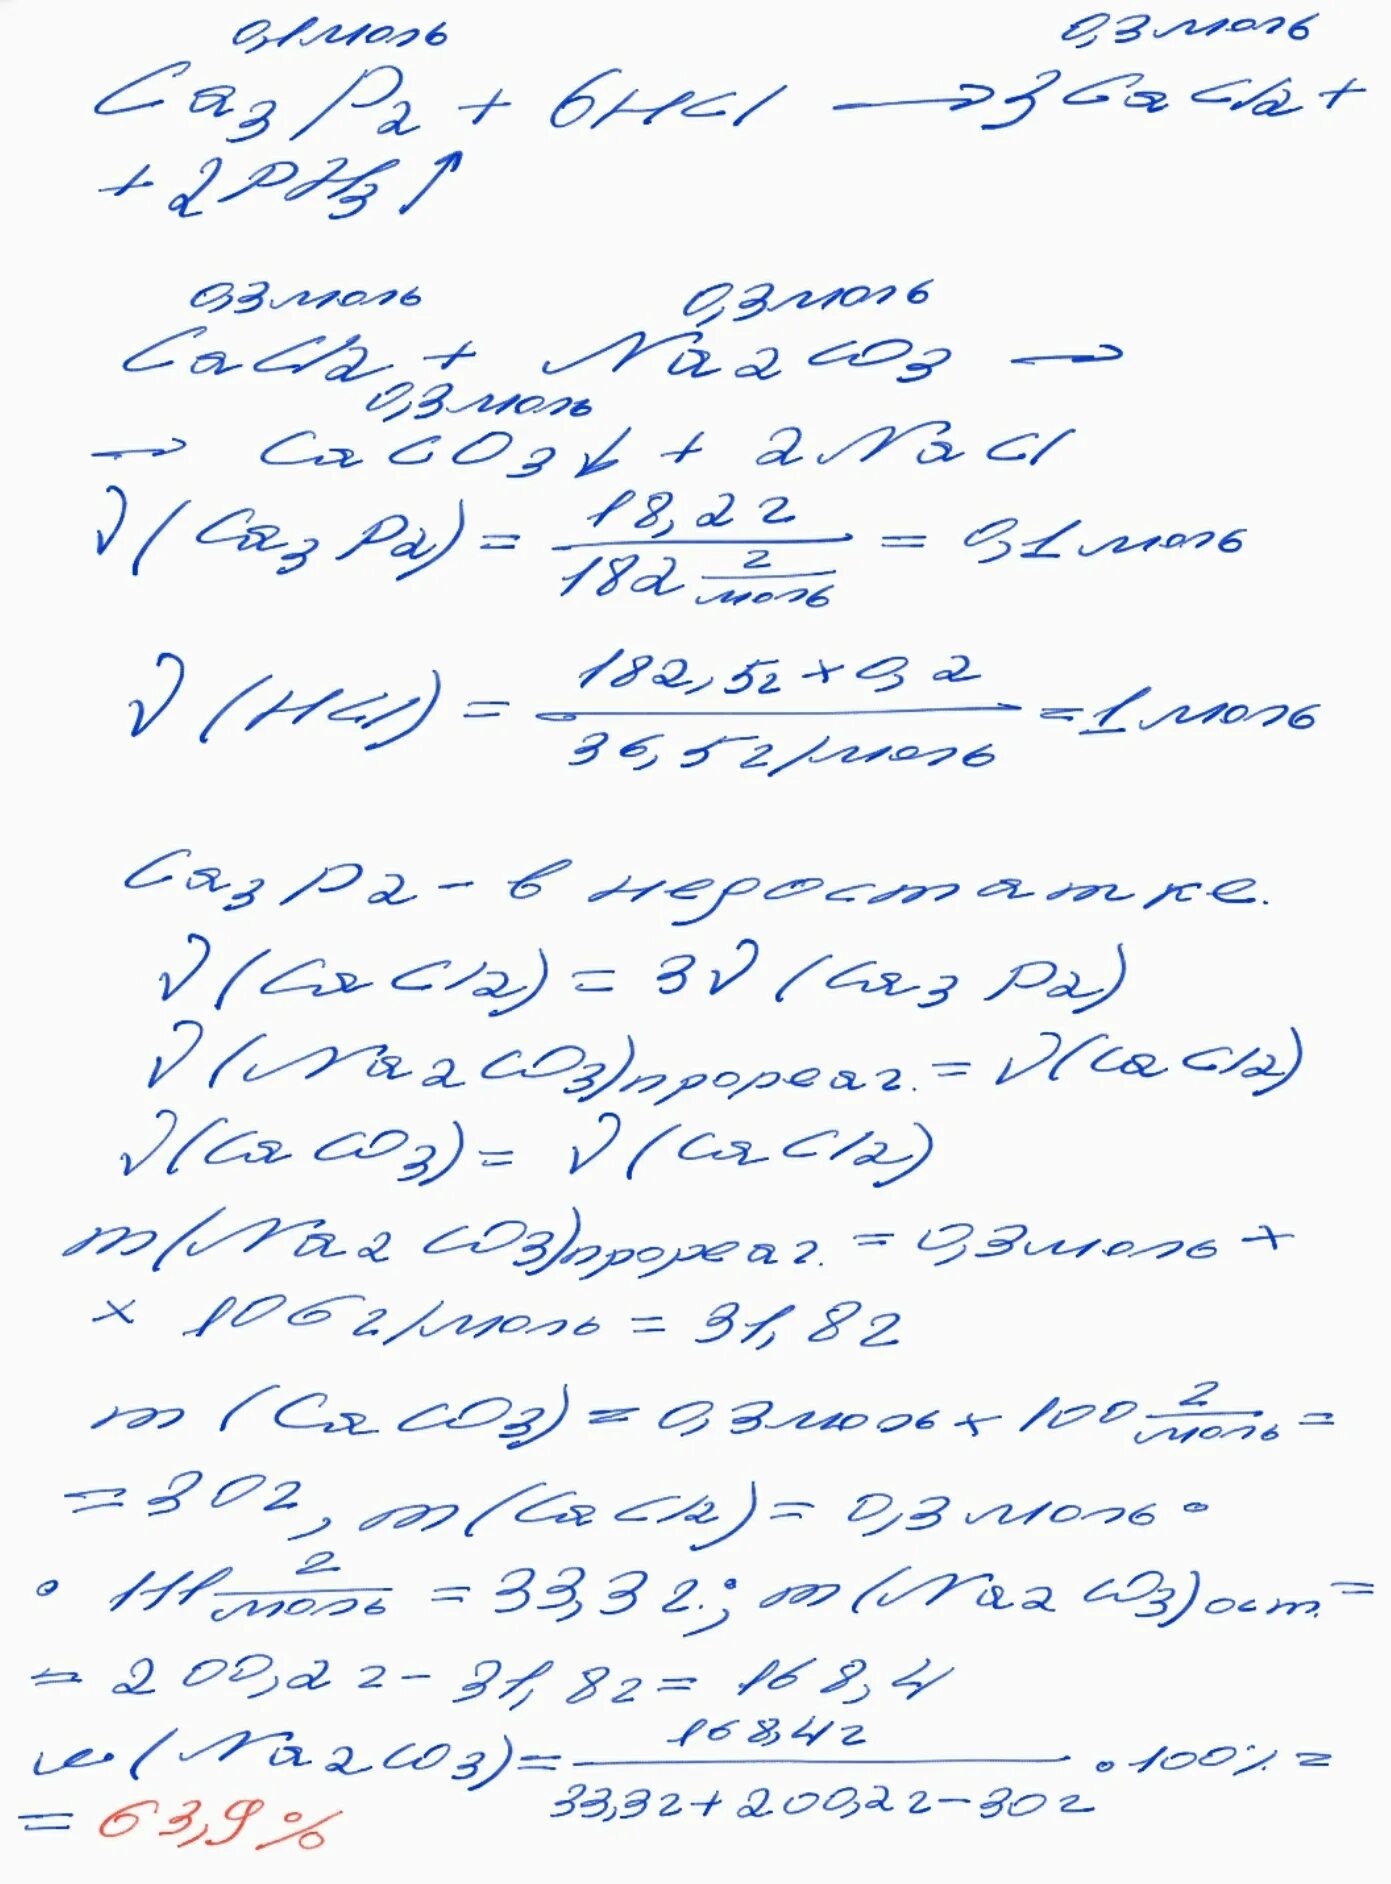 0,1моль 0,3моль
Ca3P2 + 6HCl → 3CaCl2 +
+ 2PH3↑
0,3моль 0,3моль
CaCl2 + Na2CO3 →
0,3моль
→ CaCO3↓ + 2NaCl
ν(Ca3P2) = 18,2г / 182 г/моль = 0,1моль
ν(HCl) = 182,5г × 0,2 / 36,5г/моль = 1моль
Ca3P2 - в недостатке.
ν(CaCl2) = 3ν(Ca3P2)
ν(Na2CO3)прореаг. = ν(CaCl2)
ν(CaCO3) = ν(CaCl2)
m(Na2CO3)прореаг. = 0,3моль ×
× 106г/моль = 31,8г
m(CaCO3) = 0,3моль × 100 г/моль =
= 30г, m(CaCl2) = 0,3моль ·
· 111 г/моль = 33,3г.; m(Na2CO3)ост. =
= 200,2г - 31,8г = 168,4
ω(Na2CO3) = 168,4г / 33,3г + 200,2г - 30г · 100% =
= 63,9%